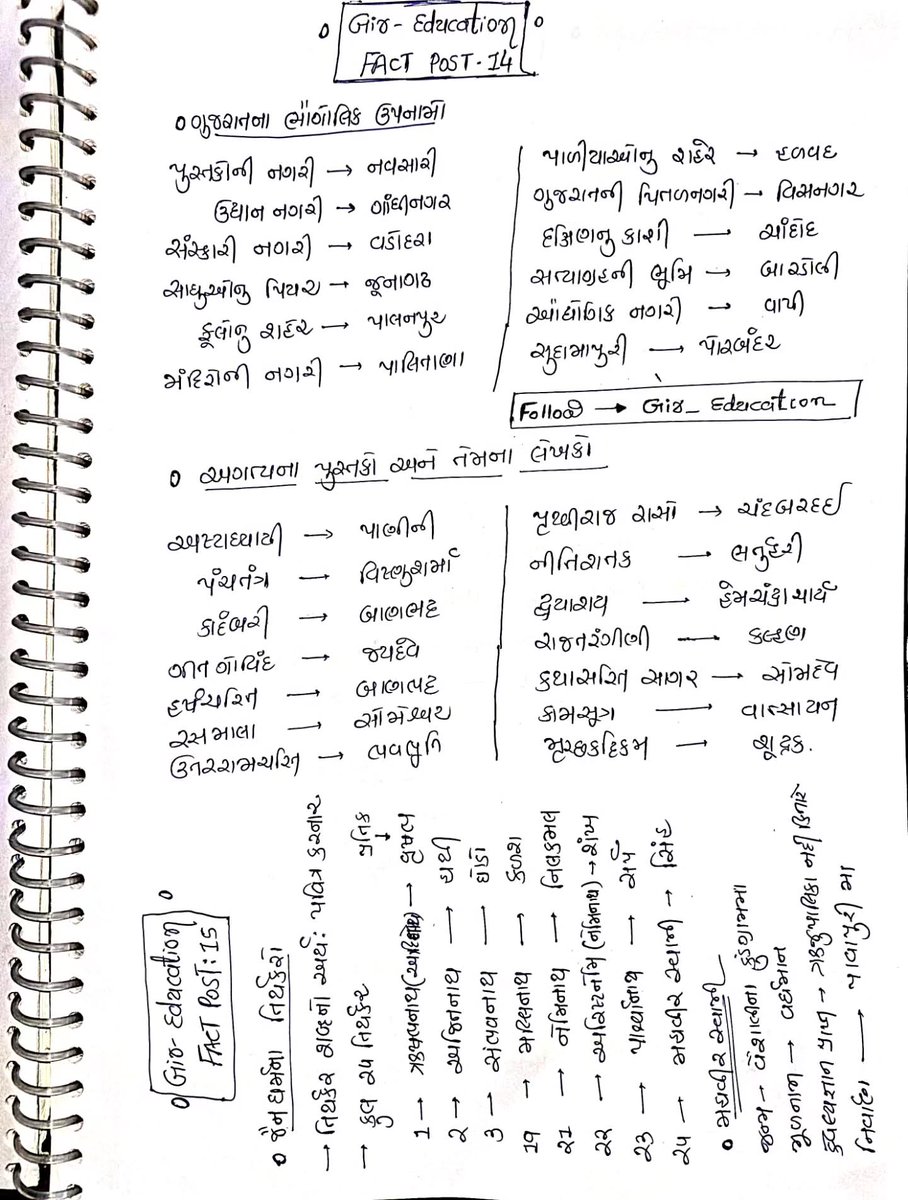 Gir- Education
FACT POST-14
ગુજરાતના ભૌગોલિક ઉપનામો
પુસ્તકોની નગરી → નવસારી
ઉધાન નગરી → ગાંધીનગર
સંસ્કારી નગરી → વડોદરા
સાધુઓનુ પિયર → જૂનાગઢ
ફૂલોનુ શહેર → પાલનપુર
મંદિરોની નગરી → પાલિતાણા
પાળીયાઓનુ શહેર → હળવદ
ગુજરાતની પિતળનગરી → વિસનગર
દક્ષિણનુ કાશી → ચાંદોદ
સત્યાગ્રહની ભૂમિ → બારડોલી
ઔદ્યોગિક નગરી → વાપી
સુદામાપુરી → પોરબંદર
Follow → Gir_ Education
અગત્યના પુસ્તકો અને તેમના લેખકો
અષ્ટાધ્યાયી → પાણીની
પંચતંત્ર → વિષ્ણુશર્મા
કાદંબરી → બાણભટ્ટ
ગીત ગોવિંદ → જયદેવ
હર્ષચરિત → બાણભટ્ટ
રસમાલા → સોમેશ્વર
ઉત્તરરામચરિત → ભવભૂતિ
પૃથ્વીરાજ રાસો → ચંદબરદઈ
નીતિશતક → ભર્તુહરી
દ્વયાશ્રય → હેમચંદ્રાચાર્ય
રાજતરંગીણી → કલ્હણ
કથાસરિત સાગર → સોમદેવ
કામસૂત્ર → વાત્સાયન
મૃચ્છકટિકમ → શૂદ્રક.
Gir- Education
FACT POST:15
જૈન ધર્મના તિર્થકરો
→ તિર્થકર શબ્દનો અર્થ: પવિત્ર કરનાર
→ કુલ ૨૫ તિર્થકર પ્રતિક
1 → ઋષભનાથ(આદિનાથ) → વૃષભ
2 → અજિતનાથ → હાથી
3 → સંભવનાથ → ઘોડો
19 → મલ્લિનાથ → કળશ
21 → નેમિનાથ → નિલકમલ
૨૨ → અરિષ્ટનેમિ(નેમિનાથ) → શંખ
૨૩ → પાર્શ્વનાથ → સર્પ
૨૫ → મહાવીર સ્વામી → સિંહ
મહાવીર સ્વામી
જન્મ - વૈશાલીના કુંડગ્રામમા
મૂળનામ → વર્ધમાન
કૈવલ્યજ્ઞાન પ્રાપ્ત → ઋજુપાલિકા નદી કિનારે
નિર્વાણ → પાવાપુરી મા